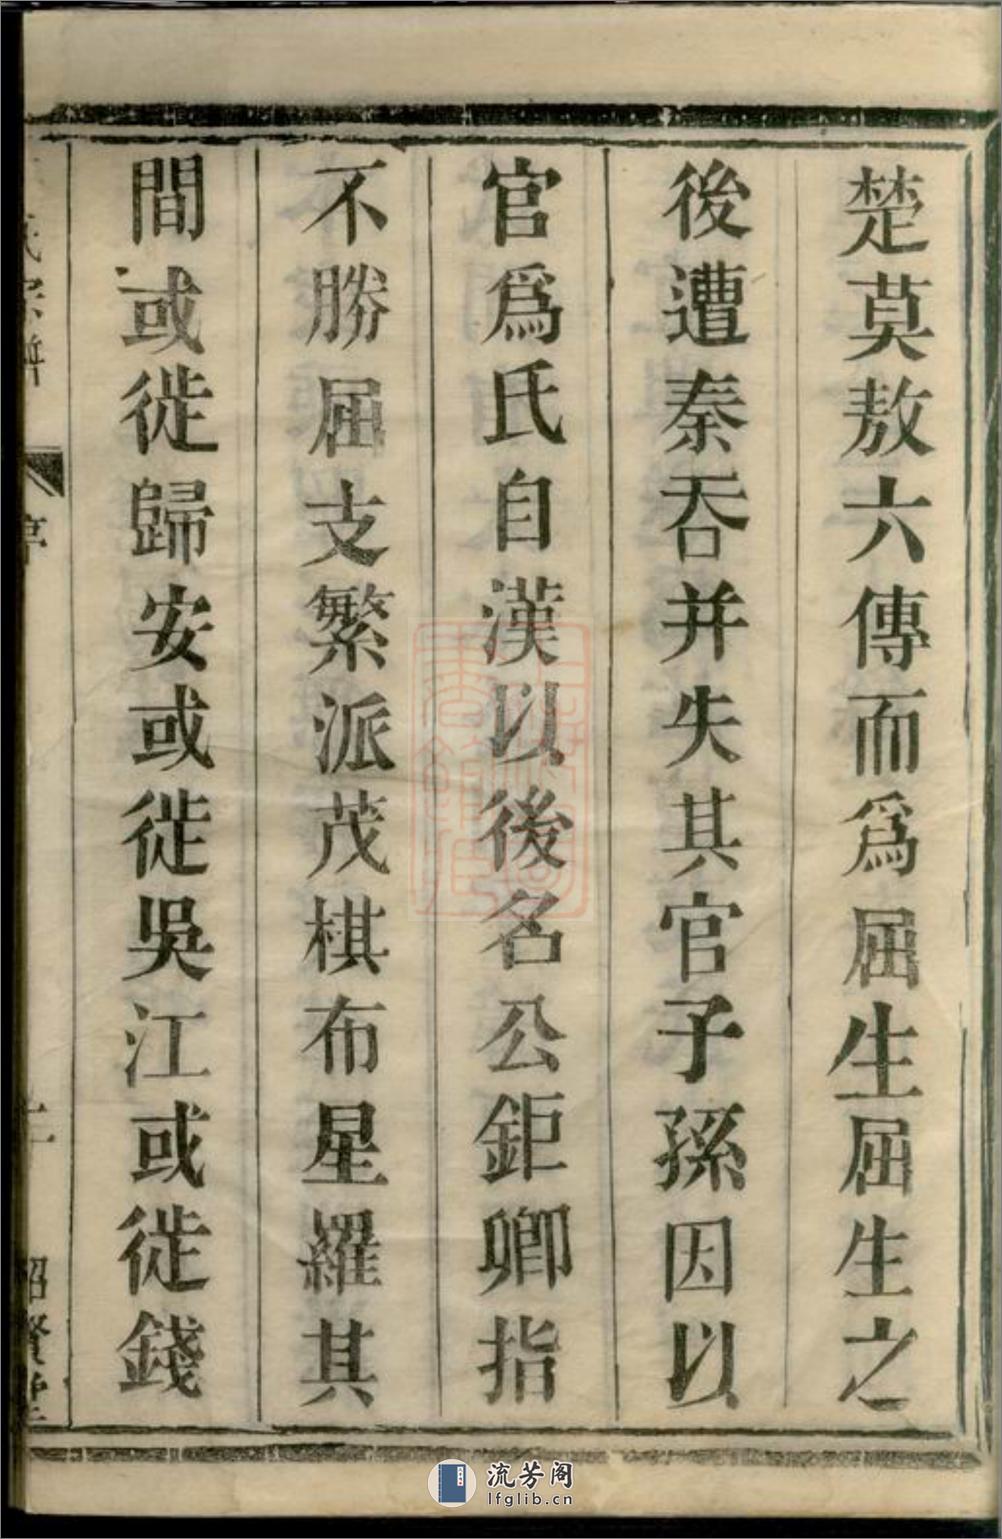 楚莫敖六傳而爲屈生屈生之
後遭秦吞并失其官子孫因以
官爲氏自漢以後名公鉅卿指
不勝屈支繁派茂棋布星羅其
間或徙歸安或徙吳江或徙錢
氏宗譜 序
流芳阁
lfglib.cn